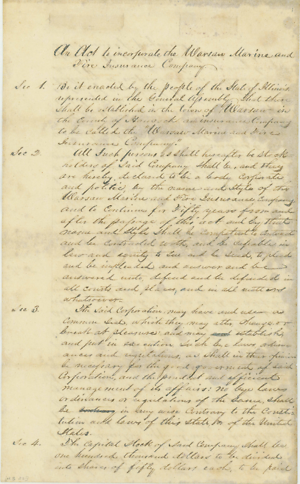 An Act to incorporate the Warsaw Marine and
Fire Insurance Company
Sec 1. Be it enacted by the People of the State of Illinois
represented in the General Assembly, that there
shall be established in the town of Warsaw in
the County of Hancock an insurance Company
to be called the "Warsaw Marine and Fire
Insurance Company."
Sec 2. All Such persons as Shall hereafter be Stock
holders of Said Company Shall be and they
are hereby declared to be a body Corporate
and politic, by the name and Style of the
Warsaw Marine and Fire Insurance Company
and to Continue for fifty years from and
after the passage of this act and by that
name and Style Shall be Competent to Contract
and be Contracted with, and be capable in
law and equity to Sue and be Sued, to plead
and be impleaded and answer and be
answered unto, defend and be defended in
all courts and places, and in all matters
whatsoever.
Sec 3. The Said Corporation may have and use a
Common Seal which they may alter, change or
break at pleasure and may establish
and put in execution Such by laws, ordin
ances and regulations, as Shall in their opinion
be necessary for the good government of Said
Corporation, and the prudent and efficient
management of its affairs: no by laws
ordinances or regulations of the Same, shall
be in any wise Contrary to the Consti
tution and laws of this State or of the United
States.
Sec 4. The Capital Stock of Said Company Shall be
one hundred thousand dollars to be divided
into Shares of fifty dollars each, to be paid